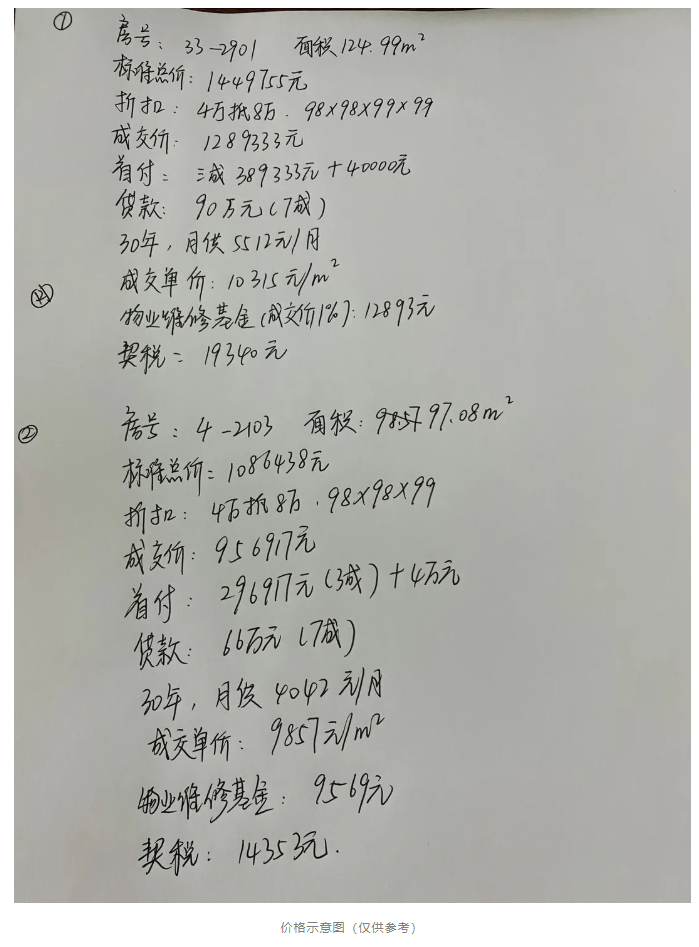 ①
房号：33-2901 面积124.99m²
标准总价：1449755元
折扣：4万抵8万．98×98×99×99
成交价：1289333元
首付：三成 389333元＋40000元
贷款：90万元(7成)
30年，月供5512元/月
成交单价：10315元/m²
物业维修基金(成交价1%)：12893元
契税＝19340元
②
房号：4-2103 面积：97.08m²
标准总价＝1086438元
折扣：4万抵8万．98×98×99
成交价：956917元
首付：296917元(3成)＋4万元
贷款：66万元(7成)
30年，月供4042元/月
成交单价：9857元/m²
物业维修基金：9569元
契税：14353元．
价格示意图（仅供参考）